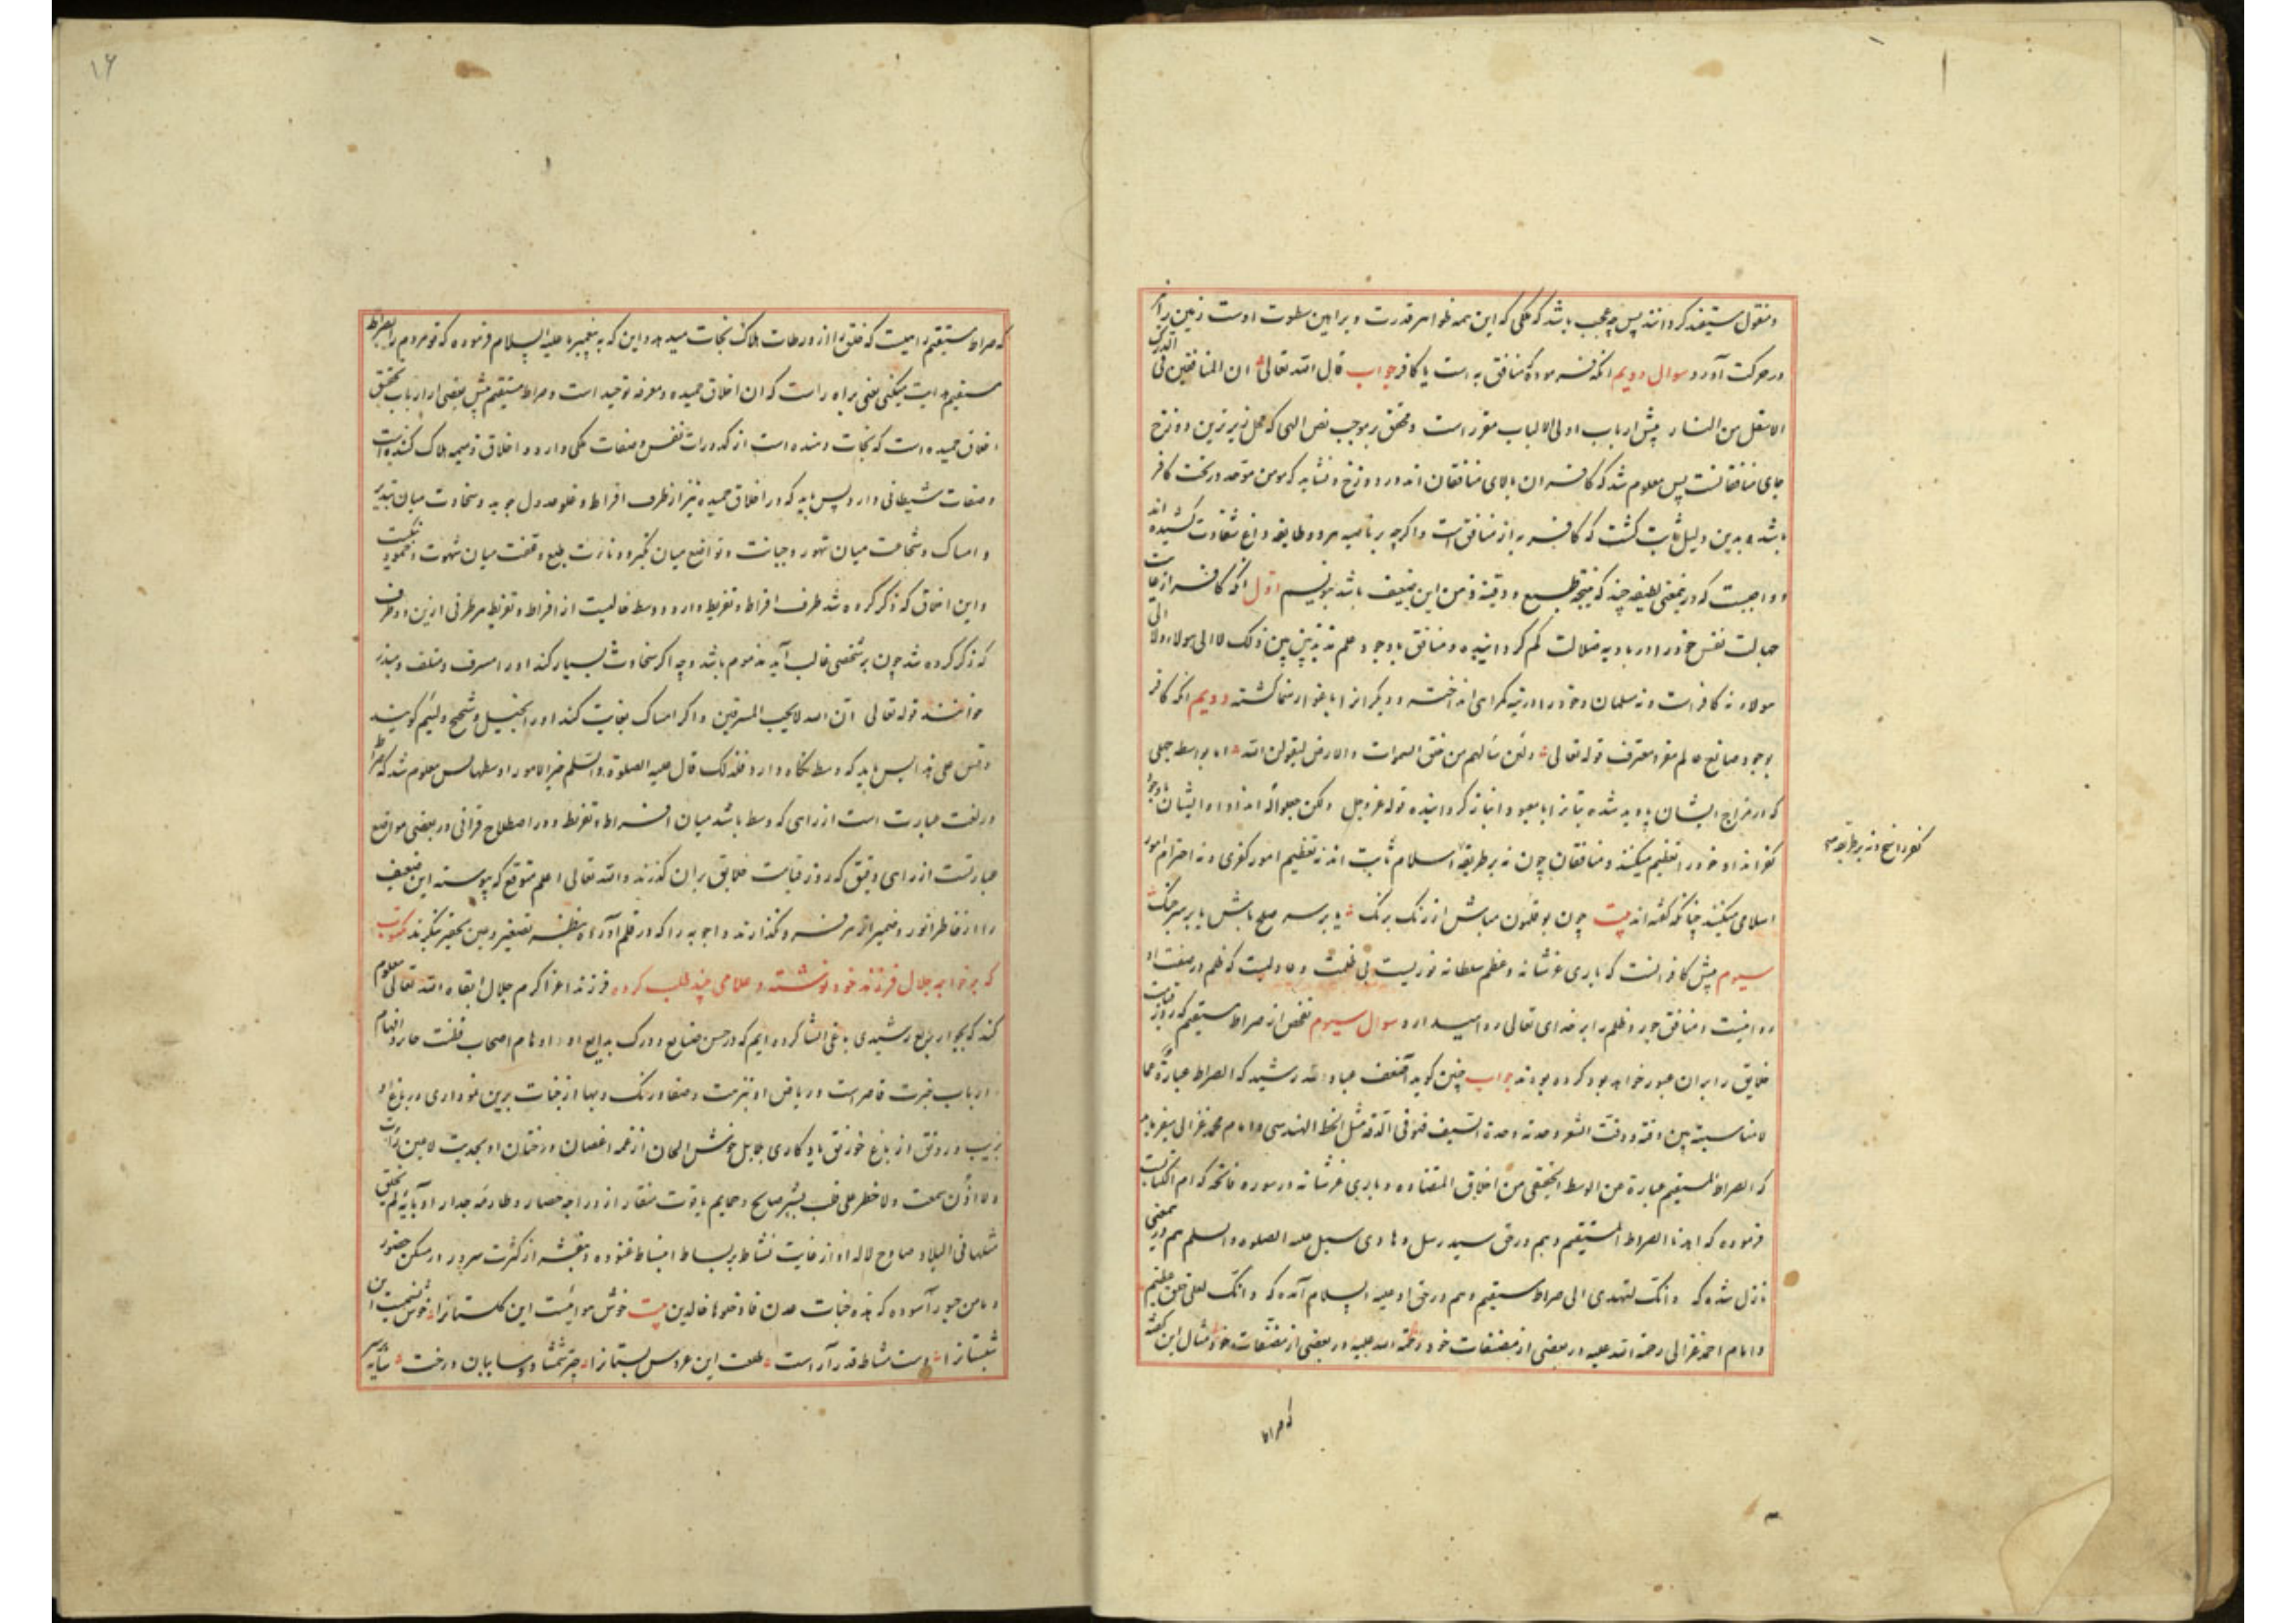 و عقول مستفید کردانند پس چه عجب باشد که ملکی که این همه ظواهر قدرت و براهین سطوت اوست زمین را
در حرکت آورد سوال دویم انکه فرموده که منافق به است یا کافر جواب قال الله تعالی ان المنافقین فی الدرک
الاسفل من النار پیش ارباب اولی الالباب مقرر است و محقق بر موجب نص الهی که محل زیرترین دوزخ
جای منافقانست پس معلوم شد که کافران بالای منافقان اند در دوزخ و نشاید که مومن موحد در تحت کافر
باشد و بدین دلیل ثابت کشت که کافر به از منافق است و اکرچه بر ناصیه هر دو طایفه داغ شقاوت کشیده اند
و واجبست که درین معنی لطیفه چند که نتیجه طبع و ذهن این ضعیف باشد بنویسم اول انکه کافر از غایت
جهالت نفس خود را در بادیه ضلالت کم کردانیده و منافق با وجود علم مذبذبین بین ذلک لا الی هولاء ولا الی
هولاء نه کافر است و نه مسلمان و خود را در تیه کمراهی انداخته و دیکران را باغوا رهنما کشته دویم انکه کافر
بوجود صانع عالم مقر و معترف قوله تعالی ولئن سألتهم من خلق السموات والارض لیقولن الله اما بواسطه جهلی
که در مزاج ایشان پدید شده بتان را با معبود انباز کردانیده قوله عز و جل و ایشان با وجود
کفر انداد خود را تعظیم میکنند و منافقان چون نه بر طریقه اسلام ثابت اند نه تعظیم امور کفری و نه احترام امور
کفر راسخ و نه بر طریقه
اسلامی میکنند چنانکه کفته اند بیت چون بوقلمون مباش از رنک برنک یا بر سر صلح باش یا بر سر جنک
سیوم پیش کافر انست که باری عز شانه و عظم سلطانه نوریست بی ظلمت و عادلیست که ظلم در صفت او
روا نیست و منافق جور و ظلم را بر خدای تعالی روا میدارد سوال سیوم تفحص از صراط مستقیم که روز قیامت
خلایق را بران عبور خواهد بود کرده بودند جواب چنین کوید اضعف عباد الله رشید که الصراط عبارة عما
لا مناسبة بین دقته و دقت الشعر و حدته و حدة السیف فهو فی الدقة مثل الخط الهندسی و امام محمد غزالی میفرماید
که الصراط المستقیم عبارة عن الوسط الحقیقی من اخلاق المتضاده و باری عز شانه در سوره فاتحه که ام الکتابست
فرموده که اهدنا الصراط المستقیم و هم در حق سید رسل و هادی سبل علیه الصلوه والسلم هم درین معنی
نازل شده که وانک لتهدی الی صراط مستقیم و هم در حق او علیه السلام آمده که وانک لعلی خلق عظیم
و امام احمد غزالی رحمة الله علیه در بعضی از مصنفات خود مثال این کفته
که صراط
۱۶
که صراط مستقیم راهیست که خلق را از ورطات هلاک نجات میدهد و این که به پیغمبر ما علیه السلام فرموده که تو مردم را بصراط
مستقیم هدایت میکنی یعنی براه راست که ان اخلاق حمیده و معرفه توحید است و صراط مستقیم پیش بعضی از ارباب تحقیق
اخلاق حمیده است که نجات دهنده است از کدورات نفس و صفات ملکی دارد و اخلاق ذمیمه هلاک کننده است
و صفات شیطانی دارد پس باید که در اخلاق حمیده نیز از طرف افراط و غلو عدول جوید و سخاوت میان تبذیر
و امساک و شجاعت میان تهور و جبانت و تواضع میان تکبر و دنائت طبع و عفت میان شهوت و خمود
و این اخلاق که ذکر کرده شد طرف افراط و تفریط دارد و وسط خالیست از افراط و تفریط هر طرفی ازین دو طرف
که ذکر کرده شد چون بر شخصی غالب آید مذموم باشد و چه اکر سخاوت بسیار کند او را مسرف و متلف و مبذر
خوانند قوله تعالی ان الله لا یحب المسرفین و اکر امساک بغایت کند او را بخیل و شحیح و لئیم کویند
وقس علی هذا پس باید که وسط نکاه دارد فلذلک قال علیه الصلوة والسلم خیر الامور اوسطها پس معلوم شد که صراط
در لغت عبارت است از راهی که وسط باشد میان افراط و تفریط و در اصطلاح قرانی در بعضی مواضع
عبارتست از راهی دقیق که روز قیامت خلایق بران کذرند والله تعالی اعلم متوقع که پیوسته این ضعیف
را از خاطر انور و ضمیر ازهر فرو نکذارند و اجوبه را که در قلم آورده بنظر تصغیر و عین تحقیر ننکرند مکتوب
که بر خواجه جلال فرزند خود نوشته و غلامی چند طلب کرده فرزند اعز اکرم جلال ابقاه الله تعالی معلوم
کند که بجوار ربع رشیدی باغی انشا کرده ایم که در حسن صنایع و درک بدایع او اوهام اصحاب فطنت حایر و افهام
ارباب خبرت قاصر است و ریاض او نزهت و صفا و رنک و بها از جنات برین نموداری و باغ او
بزیب و رونق از باغ خورنق یادکاری بلابل خوش الحان از نغمه اغصان درختان او بحدیث لا عین رأت
ولا اذن سمعت ولا خطر علی قلب بشر صایح و حمایم یاقوت منقار از دراجه حصار و طارمه جدار او بآیه لم یخلق
مثلها فی البلاد صادح لاله او از غایت نشاط بر بساط انبساط غنوده و بنفشه از کثرت سرور در مسکن حضور
و مامن حبور آسوده که هذه جنات عدن فادخلوها خالدین بیت خوش هوائیست این کلستانرا خوش نسیمست این
شبستانرا دست مشاطه قدر آراست طلعت این عروس بستانرا چتر شمشاد و سایبان درخت